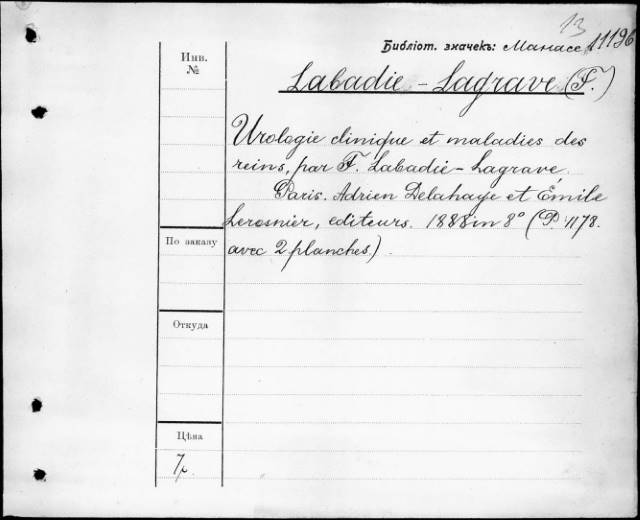 13
Библіот. значекъ: Манасе 11196
Инв.
№
Labadie-Lagrave (F.)
Urologie clinique et maladies des
reins, par F. Labadie-Lagrave.
Paris. Adrien Delahaye et Émile
Lerosnier, editeurs. 1888 in 8° (P. 1178.
avec 2 planches.)
По заказу
Откуда
Цѣна
7р.